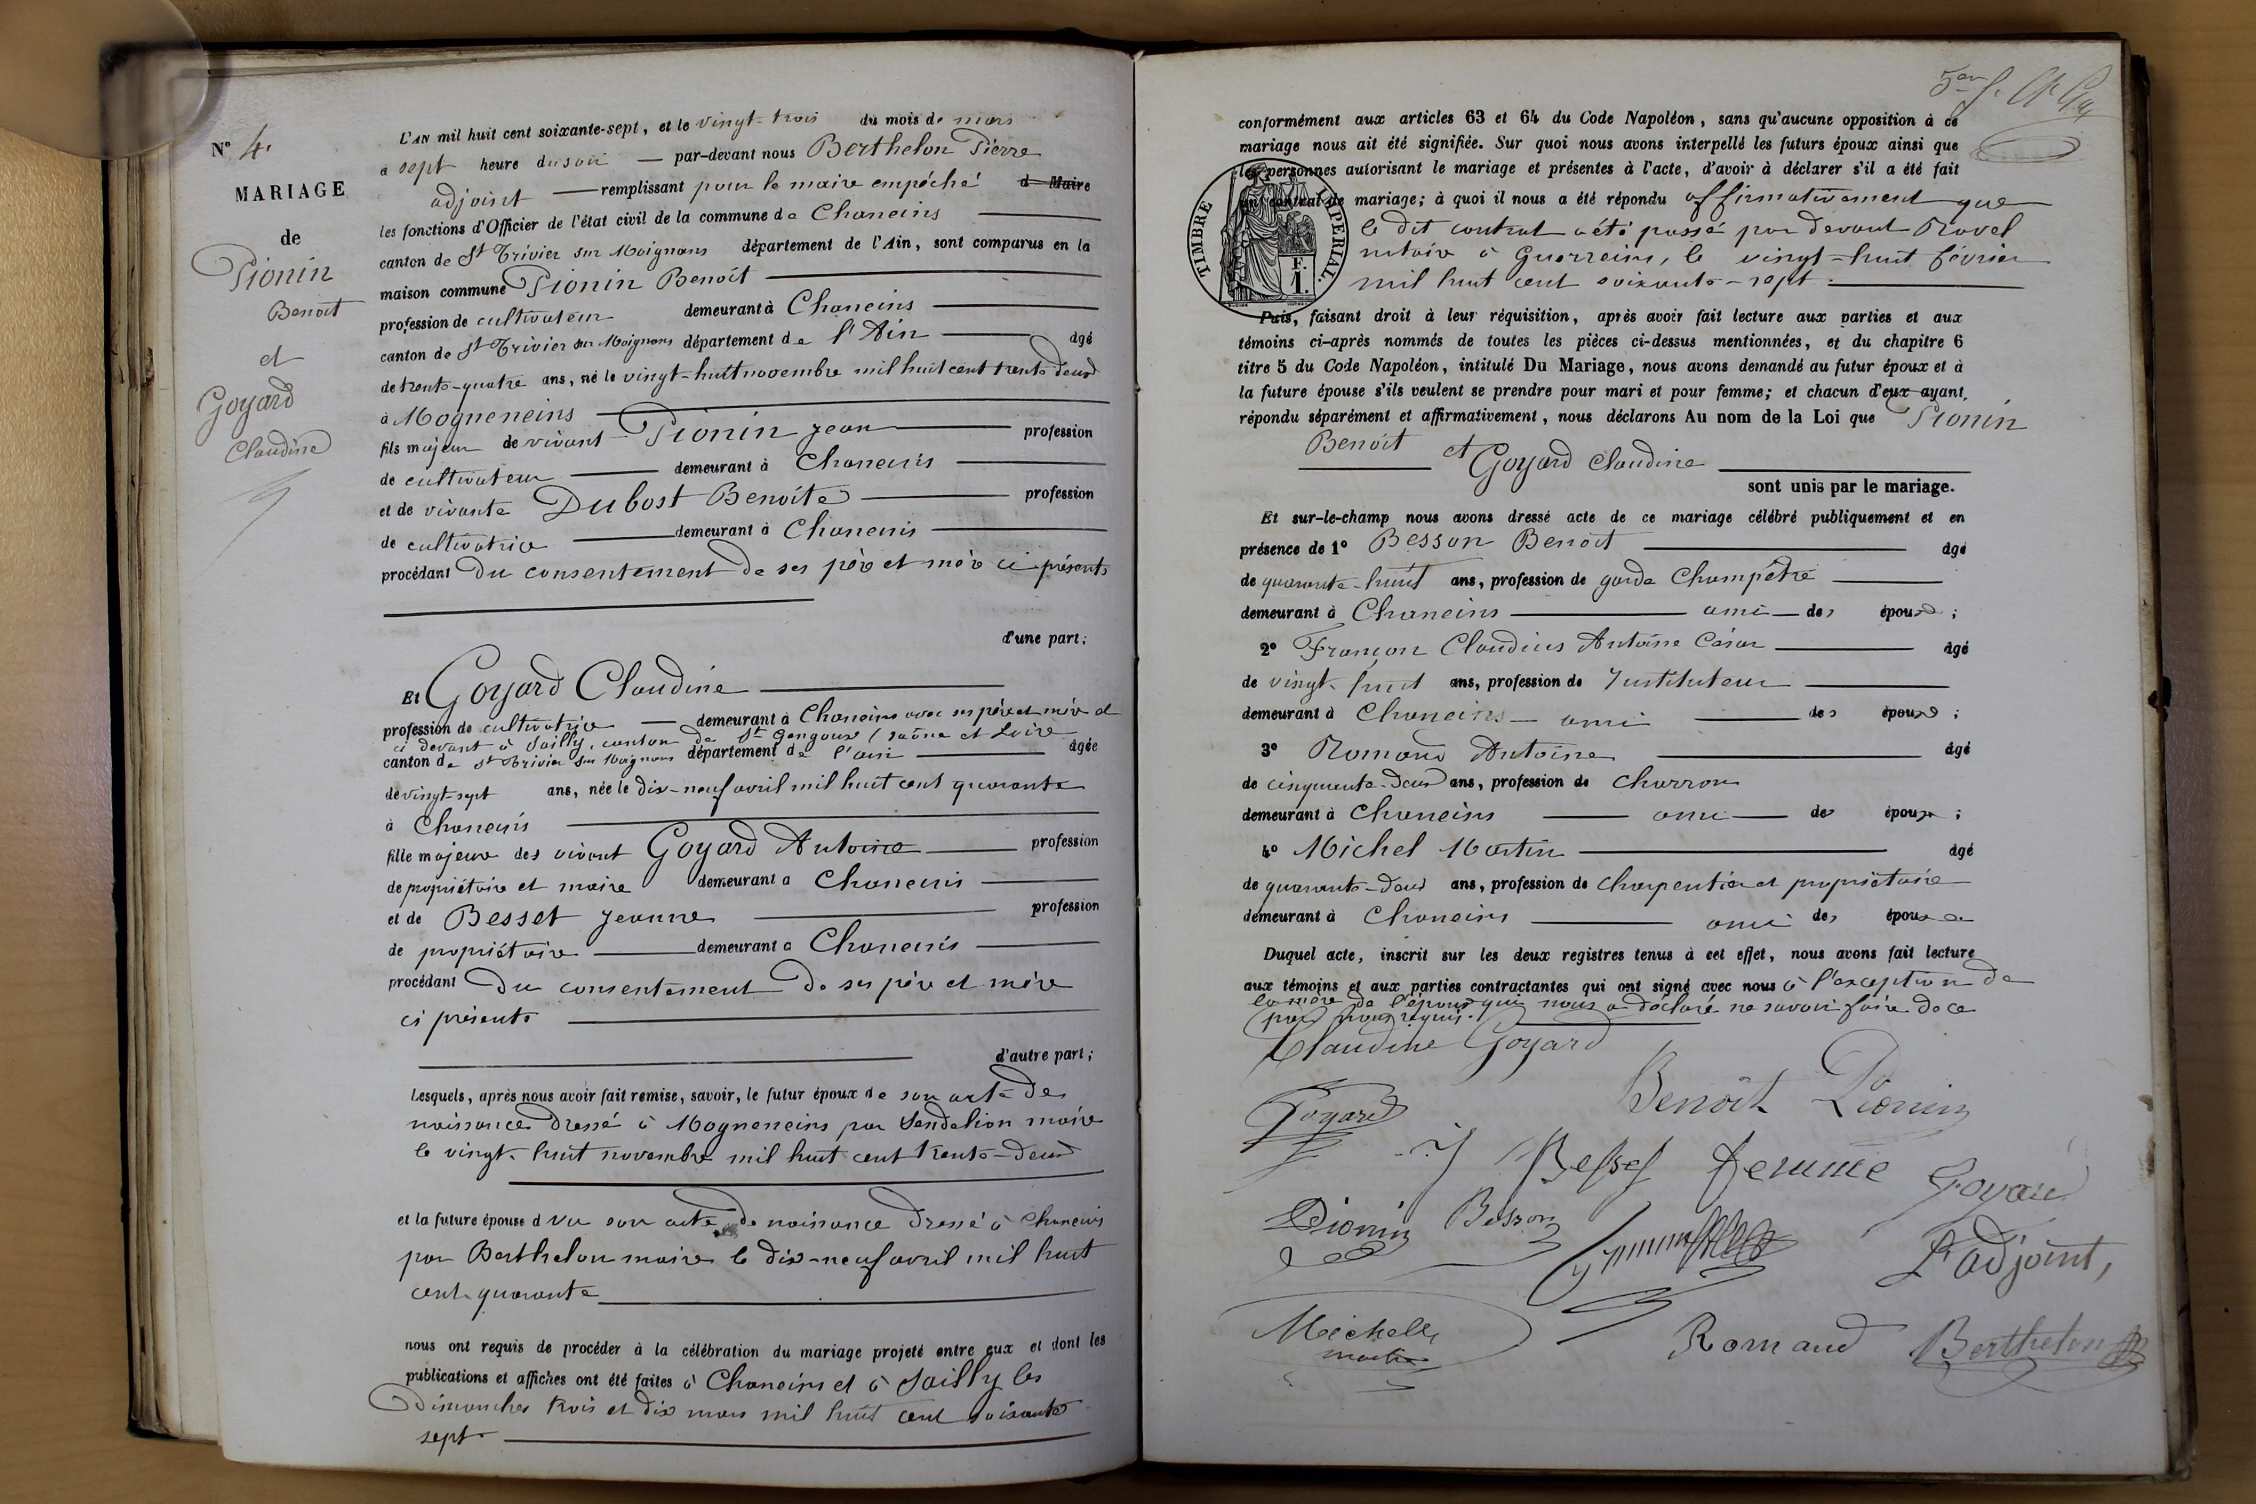 N° 4.
MARIAGE
de
Pionin
Benoit
et
Goyard
Claudine
L'AN mil huit cent soixante-sept, et le vingt-trois du mois de mars
à sept heure du soir par-devant nous Berthelon Pierre
adjoint remplissant pour le maire empêché d Maire
les fonctions d'Officier de l'état civil de la commune de Chaneins
canton de St Trivier sur Moignans département de l'Ain, sont comparus en la
maison commune Pionin Benoît
profession de cultivateur demeurant à Chaneins
canton de St Trivier sur Moignans département de l'Ain âgé
de trente-quatre ans, né le vingt-huit novembre mil huit cent trente deux
à Mogneneins
fils majeur de vivant Pionin Jean profession
de cultivateur demeurant à Chaneins
et de vivante Dubost Benoîte profession
de cultivatrice demeurant à Chaneins
procédant du consentement de ses père et mère ci présents
d'une part;
Et Goyard Claudine
profession de cultivatrice demeurant à Chaneins avec ses père et mère et
ci devant à Sailly, canton de St Gengoux (Saône et Loire
canton de St Trivier sur Moignans département de l'ain âgée
de vingt-sept ans, née le dix-neuf avril mil huit cent quarante
à Chaneins
fille majeure des vivant Goyard Antoine profession
de propriétaire et maire demeurant à Chaneins
et de Besset Jeanne profession
de propriétaire demeurant à Chaneins
procédant du consentement de ses père et mère
ci présents
d'autre part;
Lesquels, après nous avoir fait remise, savoir, le futur époux de son acte de
naissance dressé à Mogneneins par Sandelion maire
le vingt-huit novembre mil huit cent trente-deux
et la future épouse d vu son acte de naissance dressé à Chaneins
par Berthelon maire le dix-neuf avril mil huit
cent quarante
nous ont requis de procéder à la célébration du mariage projeté entre eux et dont les
publications et affiches ont été faites à Chaneins et à Sailly les
Dimanches trois et dix mars mil huit cent soixante
sept.
conformément aux articles 63 et 64 du Code Napoléon, sans qu'aucune opposition à ce
mariage nous ait été signifiée. Sur quoi nous avons interpellé les futurs époux ainsi que
les personnes autorisant le mariage et présentes à l'acte, d'avoir à déclarer s'il a été fait
un contrat de mariage; à quoi il nous a été répondu affirmativement que
le dit contrat a été passé par devant Ravel
notaire à Guerreins, le vingt-huit février
mil huit cent soixante-sept.
TIMBRE IMPERIAL.
F.
1.
Puis, faisant droit à leur réquisition, après avoir fait lecture aux parties et aux
témoins ci-après nommés de toutes les pièces ci-dessus mentionnées, et du chapitre 6
titre 5 du Code Napoléon, intitulé Du Mariage, nous avons demandé au futur époux et à
la future épouse s'ils veulent se prendre pour mari et pour femme; et chacun d'eux ayant
répondu séparément et affirmativement, nous déclarons Au nom de la Loi que Pionin
Benoît et Goyard Claudine
sont unis par le mariage.
Et sur-le-champ nous avons dressé acte de ce mariage célébré publiquement et en
présence de 1° Besson Benoît âgé
de quarante-huit ans, profession de garde champêtre
demeurant à Chaneins ami des époux;
2° Françon Claudius Antoine César âgé
de vingt-huit ans, profession de Instituteur
demeurant à Chaneins ami des époux;
3° Romand Antoine âgé
de cinquante-deux ans, profession de charron
demeurant à Chaneins ami des époux;
4° Michel Martin âgé
de quarante-deux ans, profession de charpentier et propriétaire
demeurant à Chaneins ami des époux
Duquel acte, inscrit sur les deux registres tenus à cet effet, nous avons fait lecture
aux témoins et aux parties contractantes qui ont signé avec nous à l'exception de
la mère de l'époux qui nous a déclaré ne savoir faire de ce
par nous requis.
Claudine Goyard
Benoît Pionin
Goyard
J Besset femme Goyard
Pionin
Besson
L'adjoint,
Michelle
martin
Romand
Berthelon